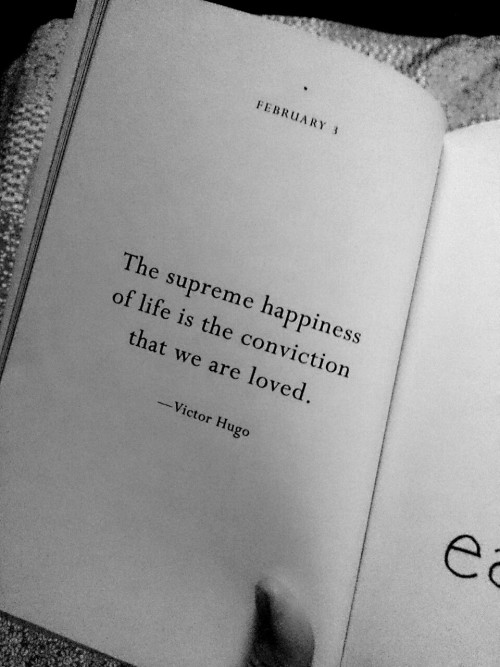 FEBRUARY 3
The supreme happiness
of life is the conviction
that we are loved.
—Victor Hugo
ea